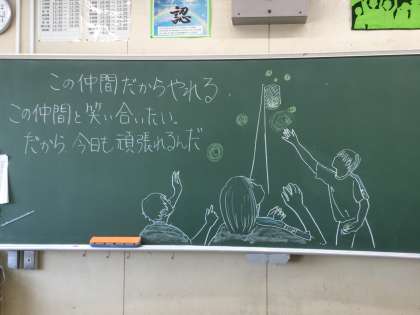 認
この仲間だからやれる.
この仲間と笑い合いたい.
だから、今日も頑張れるんだ